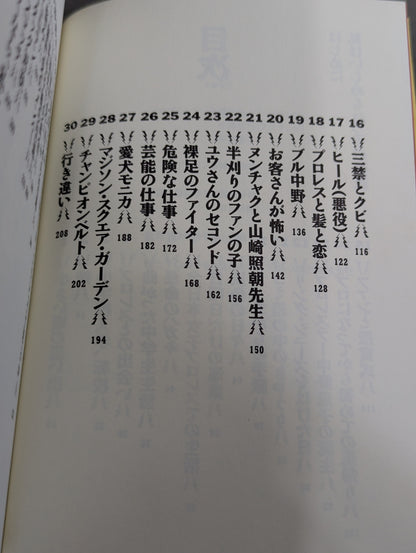 16 三禁とクビ 116
17 ヒール(悪役) 122
18 プロレスと髪と恋 128
19 ブル中野 136
20 お客さんが怖い 142
21 ヌンチャクと山崎照朝先生 150
22 半刈りのファンの子 156
23 ユウさんのセコンド 162
24 裸足のファイター 168
25 危険な仕事 172
26 芸能の仕事 182
27 愛犬モニカ 188
28 マジソン・スクエア・ガーデン 194
29 チャンピオンベルト 202
30 行き違い 208